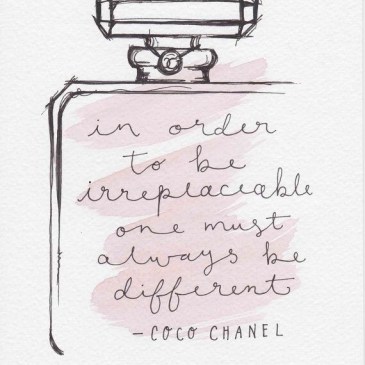 in order
to be
irreplaceable
one must
always be
different
- COCO CHANEL